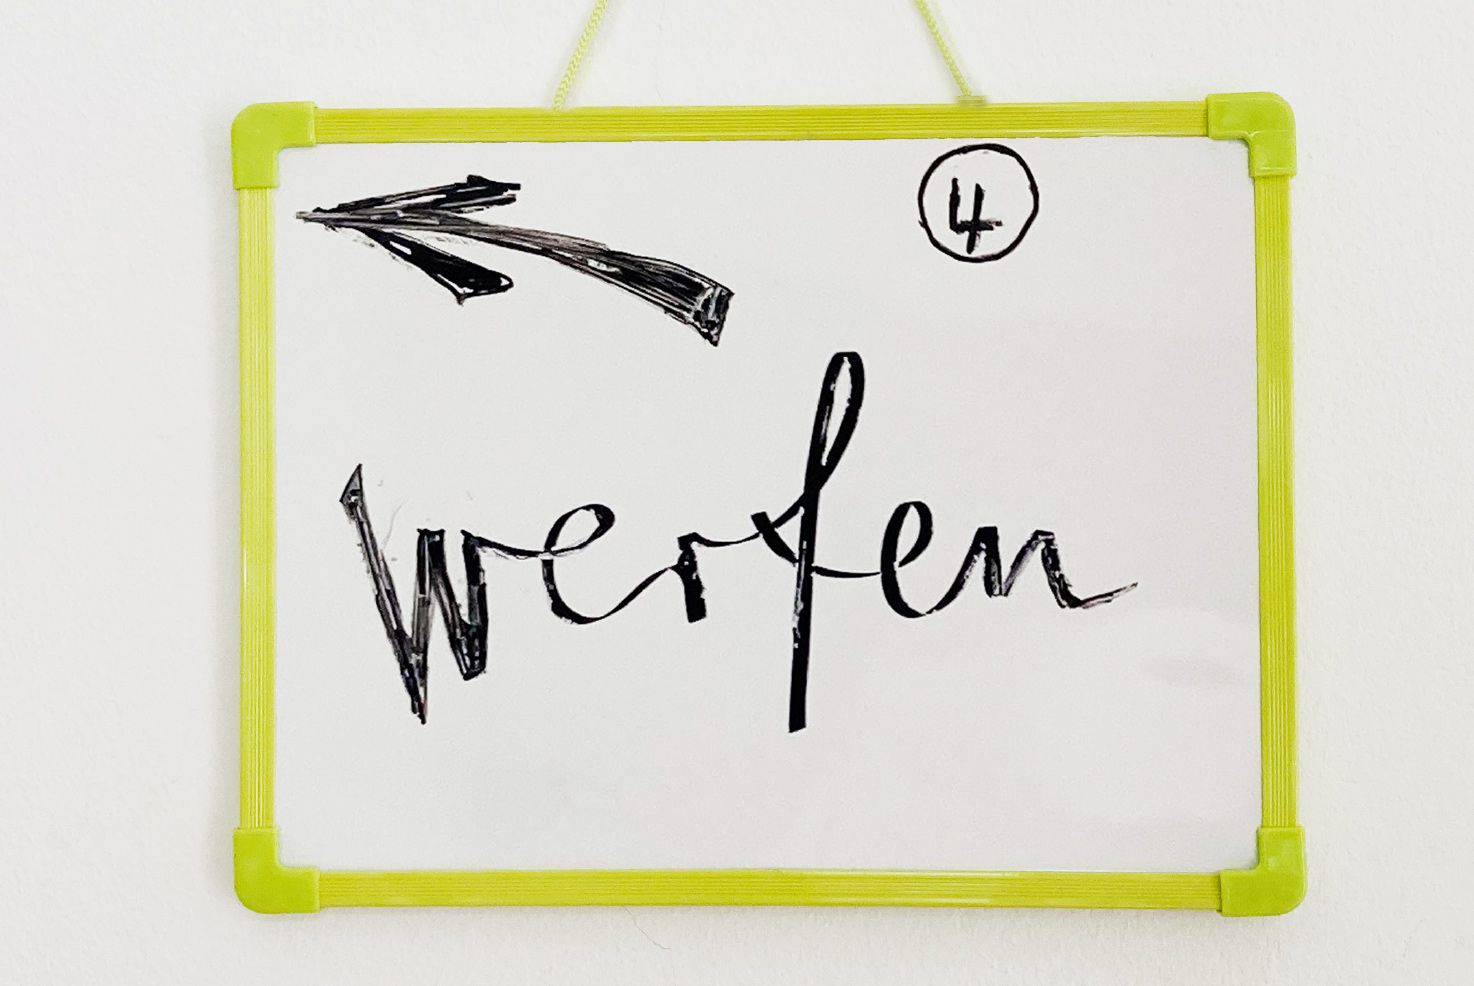 ④
werfen